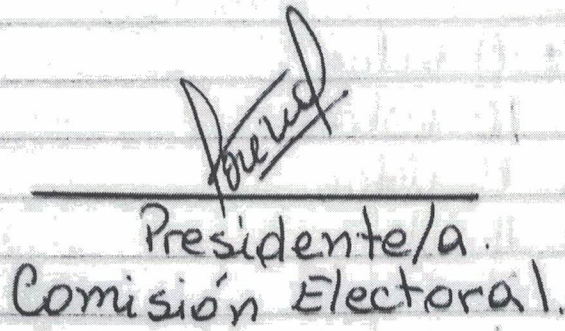 Presidente/a.
Comisión Electoral.